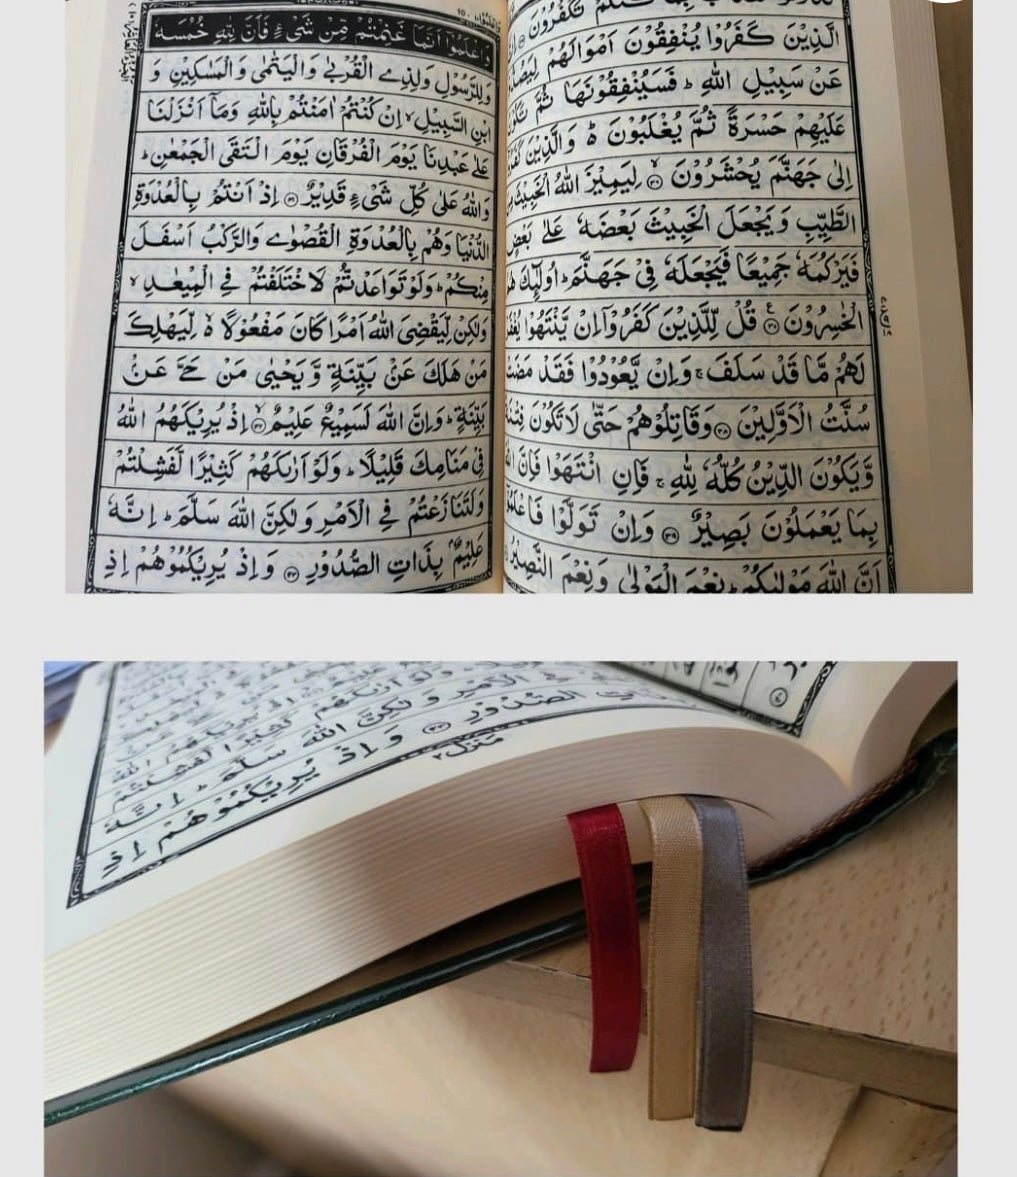 تَكْفُرُوْنَ
الَّذِيْنَ كَفَرُوْا يُنْفِقُوْنَ اَمْوَالَهُمْ
عَنْ سَبِيْلِ اللّٰهِ ؕ فَسَيُنْفِقُوْنَهَا ثُمَّ
عَلَيْهِمْ حَسْرَةً ثُمَّ يُغْلَبُوْنَ ۬ؕ وَالَّذِيْنَ
اِلٰى جَهَنَّمَ يُحْشَرُوْنَ ۙ‏﴿۳۶﴾ لِيَمِيْزَ اللّٰهُ الْخَبِيْثَ
الطَّيِّبِ وَيَجْعَلَ الْخَبِيْثَ بَعْضَهٗ عَلٰى بَعْضٍ
فَيَرْكُمَهٗ جَمِيْعًا فَيَجْعَلَهٗ فِىْ جَهَنَّمَ ؕ اُولٰٓئِكَ
الْخٰسِرُوْنَ ﴿۳۷﴾ قُلْ لِّلَّذِيْنَ كَفَرُوْۤا اِنْ يَّنْتَهُوْا
لَهُمْ مَّا قَدْ سَلَفَ ۚ وَاِنْ يَّعُوْدُوْا فَقَدْ مَضَتْ
سُنَّتُ الْاَوَّلِيْنَ ﴿۳۸﴾ وَقَاتِلُوْهُمْ حَتّٰى لَا تَكُوْنَ
وَّيَكُوْنَ الدِّيْنُ كُلُّهٗ لِلّٰهِ ۚ فَاِنِ انْتَهَوْا فَاِنَّ
بِمَا يَعْمَلُوْنَ بَصِيْرٌ ﴿۳۹﴾ وَاِنْ تَوَلَّوْا
اَنَّ اللّٰهَ مَوْلٰىكُمْ ؕ نِعْمَ الْمَوْلٰى وَنِعْمَ النَّصِيْرُ
وَاعْلَمُوْۤا اَنَّمَا غَنِمْتُمْ مِّنْ شَىْءٍ فَاَنَّ لِلّٰهِ خُمُسَهٗ
وَلِلرَّسُوْلِ وَلِذِى الْقُرْبٰى وَالْيَتٰمٰى وَالْمَسٰكِيْنِ وَ
ابْنِ السَّبِيْلِ ۙ اِنْ كُنْتُمْ اٰمَنْتُمْ بِاللّٰهِ وَمَاۤ اَنْزَلْنَا
عَلٰى عَبْدِنَا يَوْمَ الْفُرْقَانِ يَوْمَ الْتَقَى الْجَمْعٰنِ ؕ
وَاللّٰهُ عَلٰى كُلِّ شَىْءٍ قَدِيْرٌ ﴿۴۱﴾ اِذْ اَنْتُمْ بِالْعُدْوَةِ
الدُّنْيَا وَهُمْ بِالْعُدْوَةِ الْقُصْوٰى وَالرَّكْبُ اَسْفَلَ
مِنْكُمْ ؕ وَلَوْ تَوَاعَدْتُّمْ لَاخْتَلَفْتُمْ فِى الْمِيْعٰدِ ۙ
وَلٰكِنْ لِّيَقْضِىَ اللّٰهُ اَمْرًا كَانَ مَفْعُوْلًا ۬ۙ لِّيَهْلِكَ
مَنْ هَلَكَ عَنْۢ بَيِّنَةٍ وَّيَحْيٰى مَنْ حَىَّ عَنْۢ
بَيِّنَةٍ ؕ وَاِنَّ اللّٰهَ لَسَمِيْعٌ عَلِيْمٌ ۙ‏﴿۴۲﴾ اِذْ يُرِيْكَهُمُ اللّٰهُ
فِىْ مَنَامِكَ قَلِيْلًا ؕ وَلَوْ اَرٰٮكَهُمْ كَثِيْرًا لَّفَشِلْتُمْ
وَلَتَنَازَعْتُمْ فِى الْاَمْرِ وَلٰكِنَّ اللّٰهَ سَلَّمَ ؕ اِنَّهٗ
عَلِيْمٌۢ بِذَاتِ الصُّدُوْرِ ﴿۴۳﴾ وَاِذْ يُرِيْكُمُوْهُمْ اِذِ
اَرٰٮكَهُمْ كَثِيْرًا لَّفَشِلْتُمْ
الْاَمْرِ وَلٰكِنَّ اللّٰهَ سَلَّمَ ؕ اِنَّهٗ
الصُّدُوْرِ ﴿۴۳﴾ وَاِذْ يُرِيْكُمُوْهُمْ اِذِ
مَنْزِل ۲